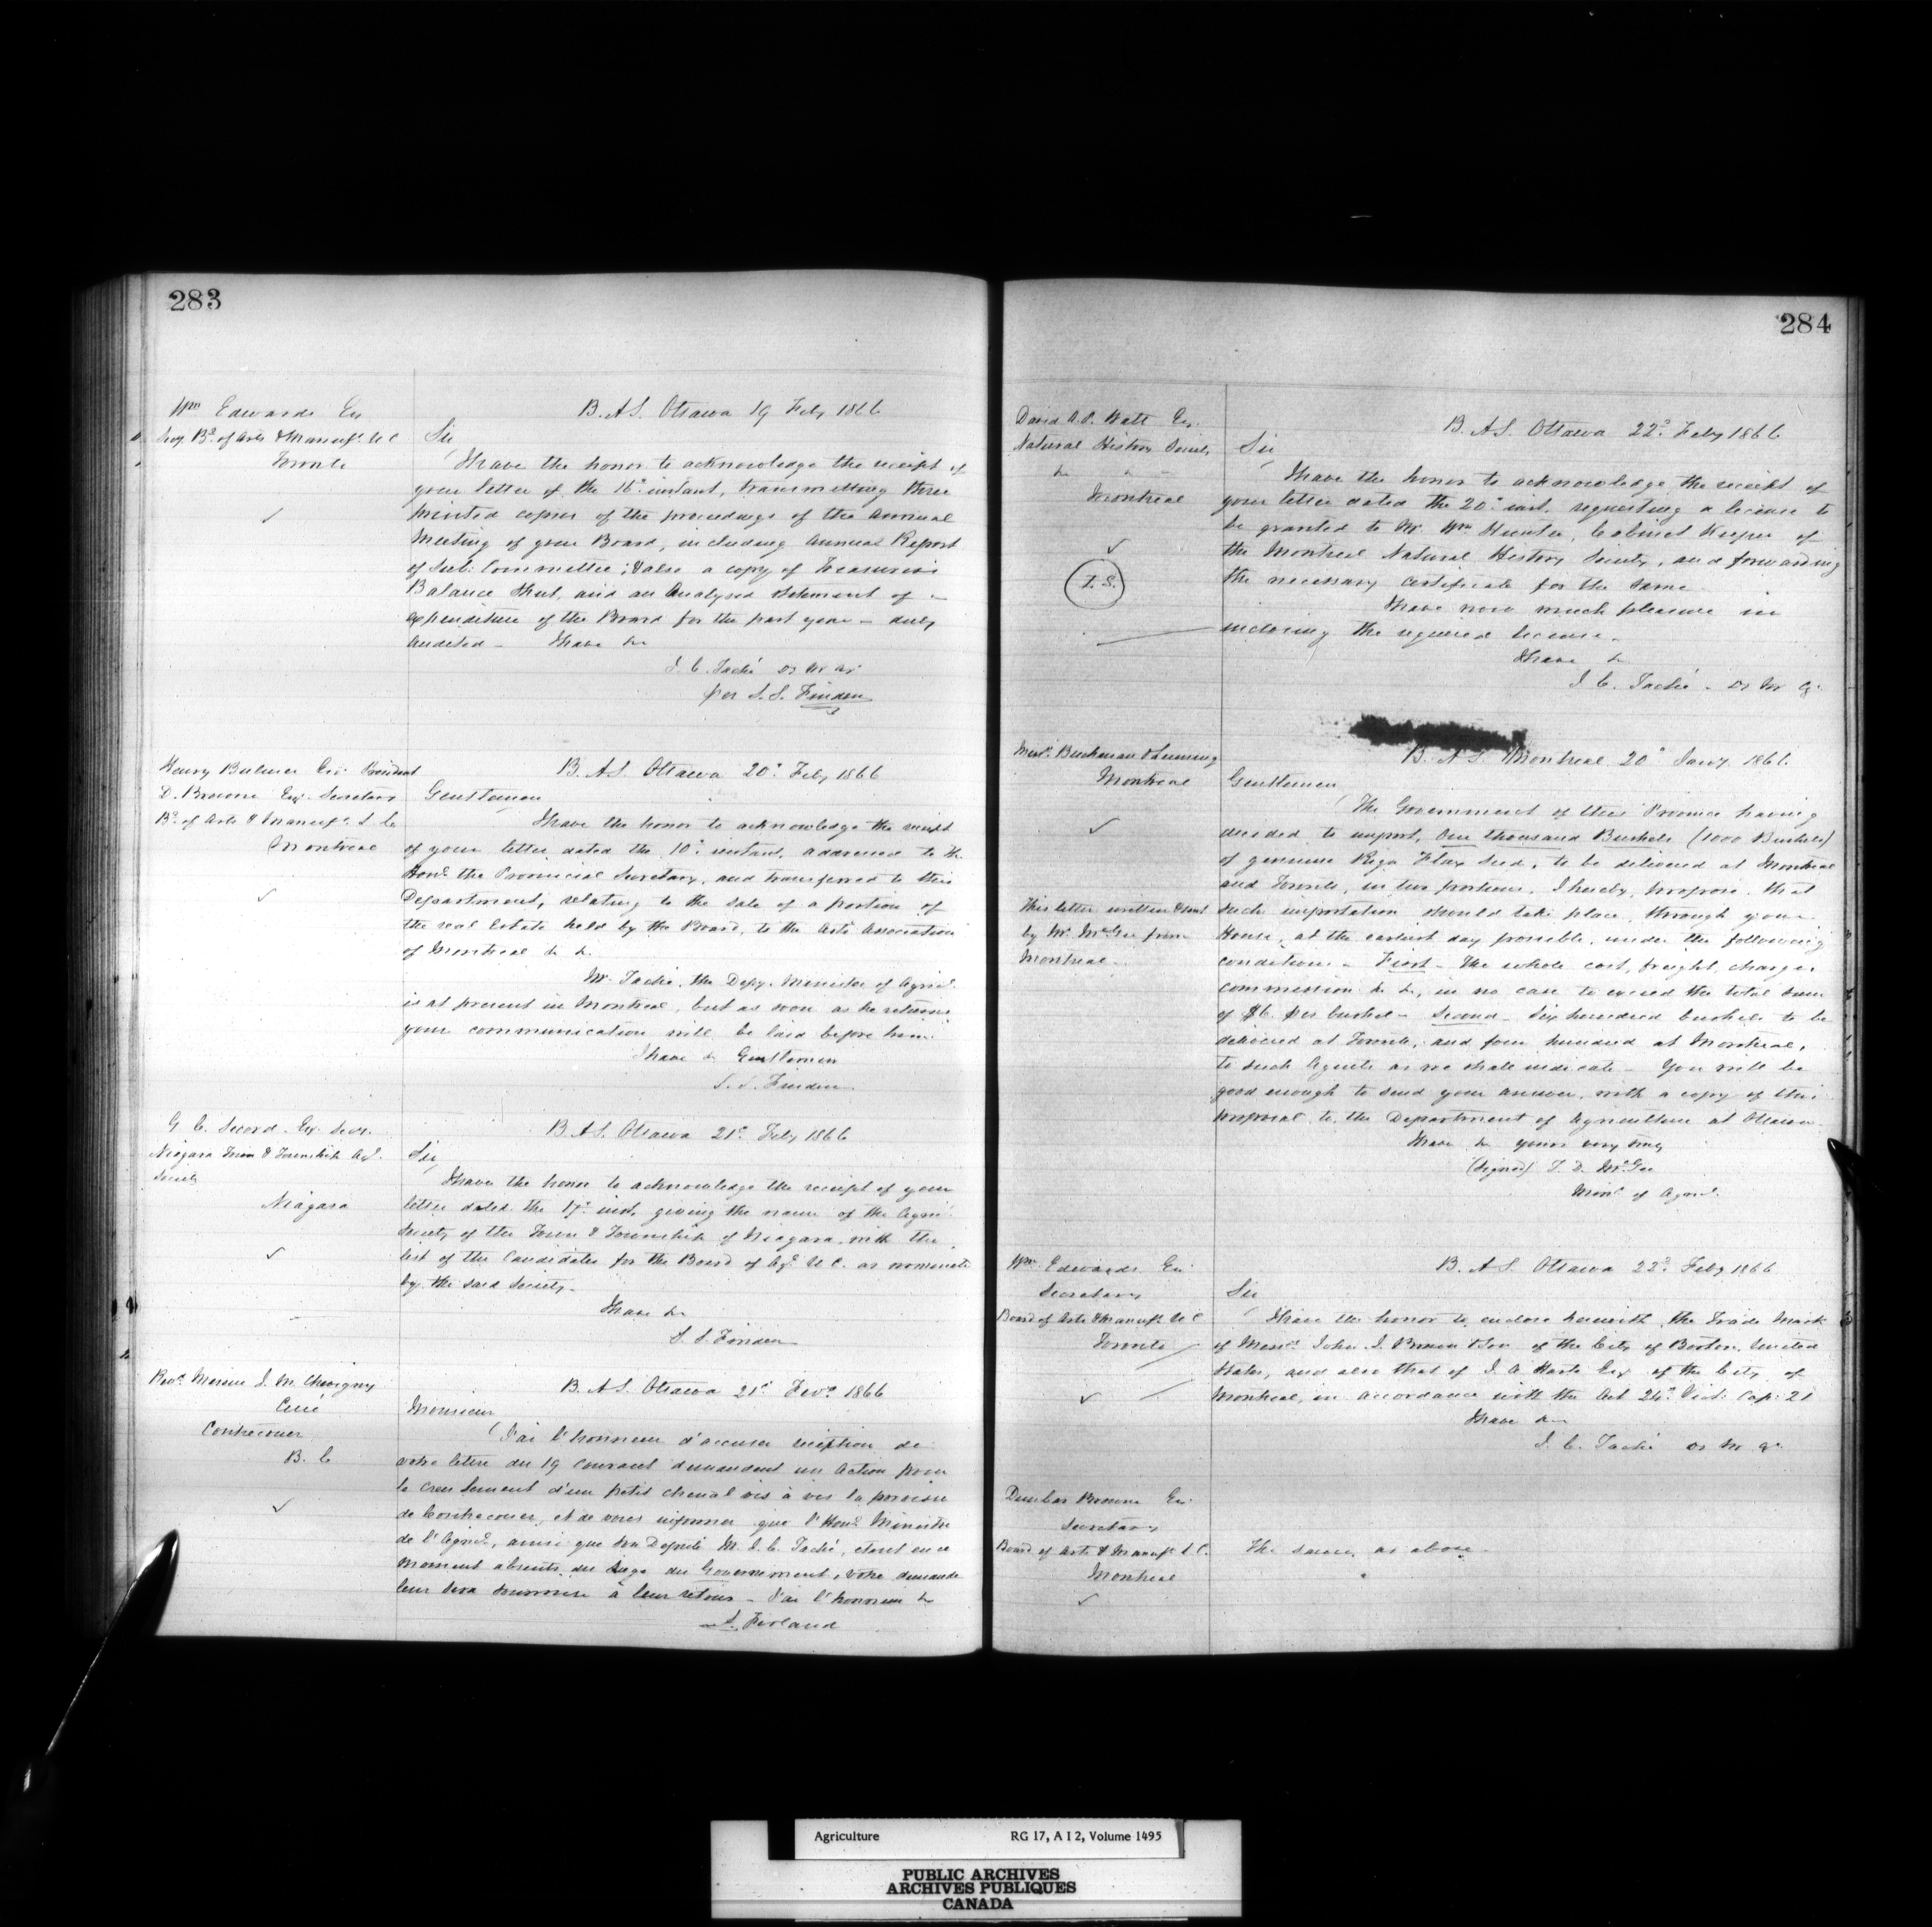 283
Wm Edwards Esq
Secy Bd. of Arts & Manufs. U C
Toronto
B. A & S. Ottawa 19 Feby 1866
Sir
I have the honor to acknowledge the receipt of
your letter of the 16th instant, transmitting three
printed copies of the proceedings of the Annual
Meeting of your Board, including Annual Report
of Sub: Committee; & also a copy of Treasurers
Balance Sheet, and an Analysed Statement of
expenditure of the Board for the past year - duly
audited - I have &c
J. C. Taché D. M. Ag.
per S. S. Finden
Henry Bulmer Esq. President
D. Browne Esq. Secretary
Bd. of Arts & Manufs. L. C.
Montreal
B. A & S. Ottawa 20th Feby 1866
Gentlemen
I have the honor to acknowledge the receipt
of your letter dated the 10th instant, addressed to the
Honl. the Provincial Secretary, and transferred to this
Department, relating to the sale of a portion of
the real Estate held by the Board, to the Arts Association
of Montreal &c &c.
Mr. Taché, the Depy. Minister of Agricl.
is at present in Montreal, but as soon as he returns
your communication will be laid before him.
I have &c Gentlemen
S. S. Finden
G C. Secord Esq. Secy.
Niagara Town & Township Agl.
Society
Niagara
B. A & S. Ottawa 21st Feby 1866
Sir
I have the honor to acknowledge the receipt of your
letter dated the 17th inst, giving the name of the Agricl.
Society of the Town & Township of Niagara, with the
list of the Candidates for the Board of Agl. U C. as nominated
by the said Society -
I have &c
S. S. Finden
Revd. Messire J. M. Chevigny
Curé
Contrecoeur
B. C
B. A & S. Ottawa 21st Fevr. 1866
Monsieur
J'ai l'honneur d'accuser réception de
votre lettre du 19 Courant demandant un Action pour
le creusement d'un petit chenal vis à vis la paroisse
de Contrecoeur, et de vous informer que l'Honl. Ministre
de l'Agricl., ainsi que son Député M. J. C. Taché, étant en ce
moment absents du Siège du Gouvernement, votre demande
leur sera soumise à leur retour - J'ai l'honneur &c
S. Ferland
284
David A. P. Watt Esq.
Natural History Society
&c " "
Montreal
T. S.
B. A & S. Ottawa 22d. Feby 1866
Sir
I have the honor to acknowledge the receipt of
your letter dated the 20th inst. requesting a license to
be granted to Mr. Wm Hunter, Cabinet Keeper of
the Montreal Natural History Society, and forwarding
the necessary Certificate for the same.
I have now much pleasure in
inclosing the required license -
I have &c
J. C. Taché - D. M. Ag.
Messrs. Buchanan & Leeming
Montreal
This letter written & sent
by Mr. McGee from
Montreal -
B. A & S. Montreal 20th Jany. 1866
Gentlemen
The Government of this Province having
decided to import, One thousand Bushels (1000 Bushels)
of genuine Riga Flax Seed, to be delivered at Montreal
and Toronto, in two portions, I hereby, propose that
such importation should take place, through your
House, at the earliest day possible, under the following
conditions - First - The whole cost, freight, charges
commission &c &c, in no case to exceed the total sum
of $6 per bushel - Second - Six hundred bushels to be
delivered at Toronto, and four hundred at Montreal,
to such Agents as we shall indicate - You will be
good enough to send your answer, with a copy of this
proposal to the Department of Agriculture at Ottawa
I have &c yours very truly
(Signed) T. D. McGee
Minr. of Agricl.
Wm. Edwards Esq.
Secretary
Board of Arts & Manufs. U C
Toronto
B. A & S. Ottawa 22d. Feby 1866
Sir
I have the honor to enclose herewith the Trade Mark
of Messrs. John I. Brown & Son of the City of Boston, United
States, and also that of J. A. Harte Esq of the City of
Montreal, in accordance with the Act 24th Vict: Cap: 21
I have &c
J. C. Taché D. M. Ag.
Dunbar Browne Esq.
Secretary
Board of Arts & Manufs. L C.
Montreal
The same, as above.
Agriculture RG 17, A I 2, Volume 1495
PUBLIC ARCHIVES
ARCHIVES PUBLIQUES
CANADA